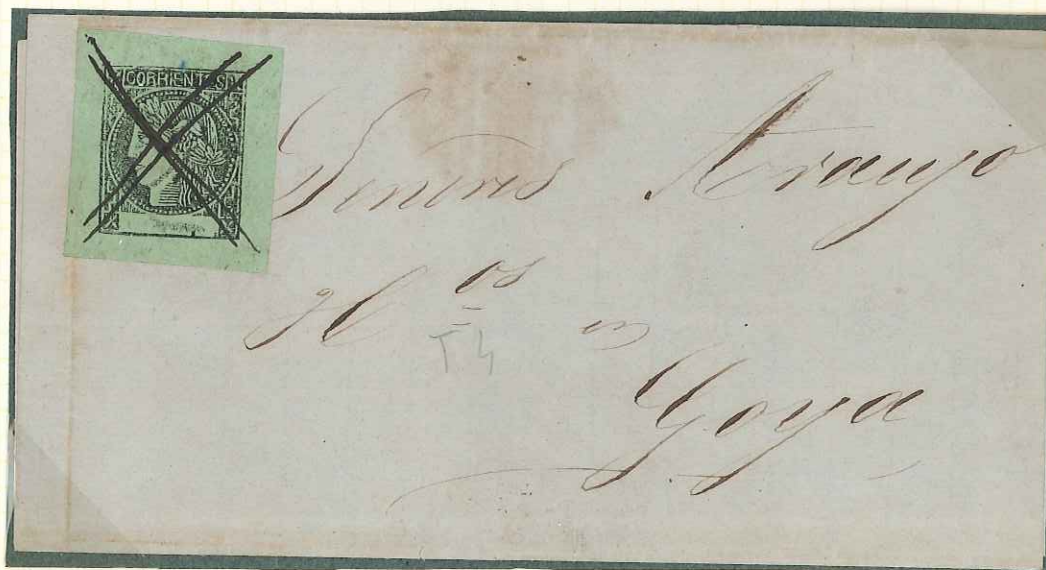 CORRIENTES
Señores Araujo
H os en
T4
Goya